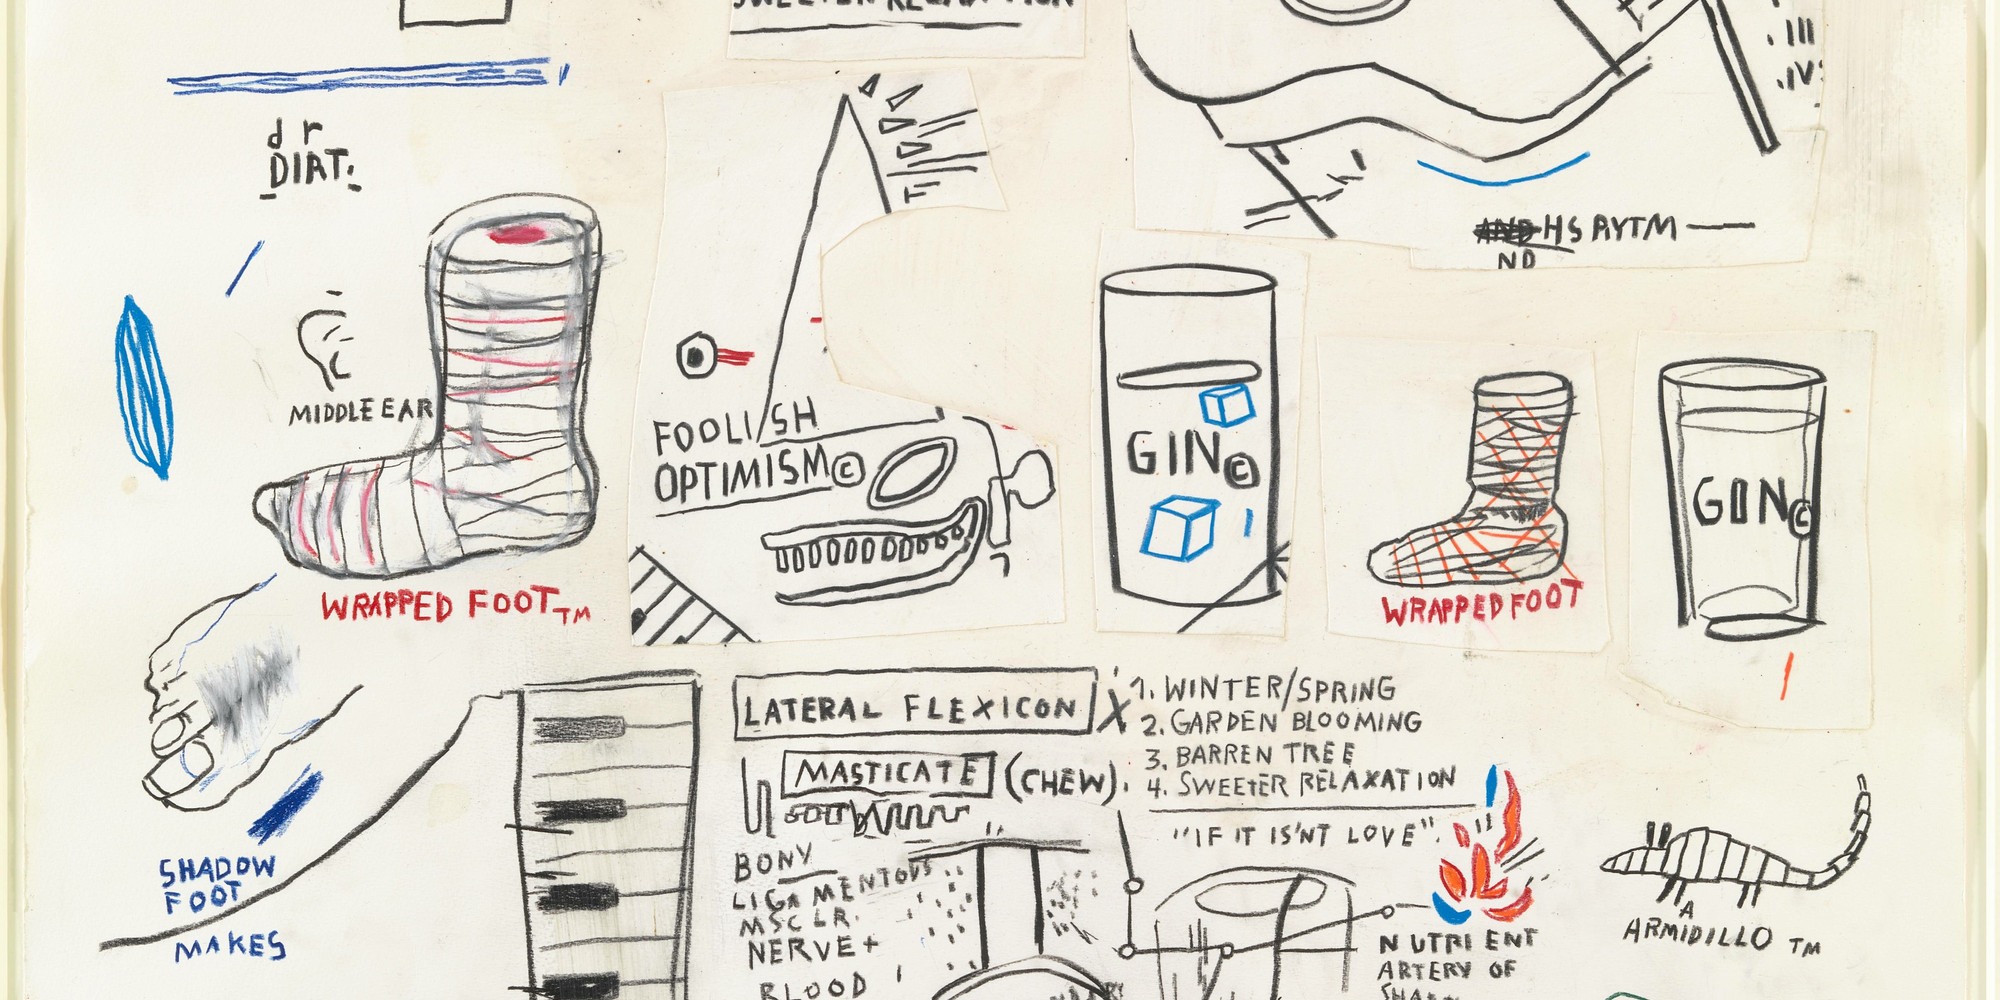 SWEETER RELAXATION
III
IV
dr
DIRT.
AND HS RYTM —
ND
MIDDLE EAR
FOOLISH
OPTIMISM©
GIN©
GIN©
WRAPPED FOOT TM
WRAPPED FOOT
LATERAL FLEXICON X
1. WINTER/SPRING
2. GARDEN BLOOMING
3. BARREN TREE
4. SWEETER RELAXATION
MASTICATE (CHEW).
"IF IT IS'NT LOVE".
SHADOW
FOOT
MAKES
BONY
LIGAMENTOUS
MSCLR.
NERVE +
BLOOD
NUTRIENT
ARTERY OF
A
ARMIDILLO TM